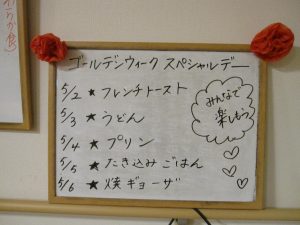 ゴールデンウィーク スペシャルデー
5/2 ★ フレンチトースト
5/3 ★ うどん
5/4 ★ プリン
5/5 ★ たき込みごはん
5/6 ★ 焼ギョーザ
みんなで
楽しもう